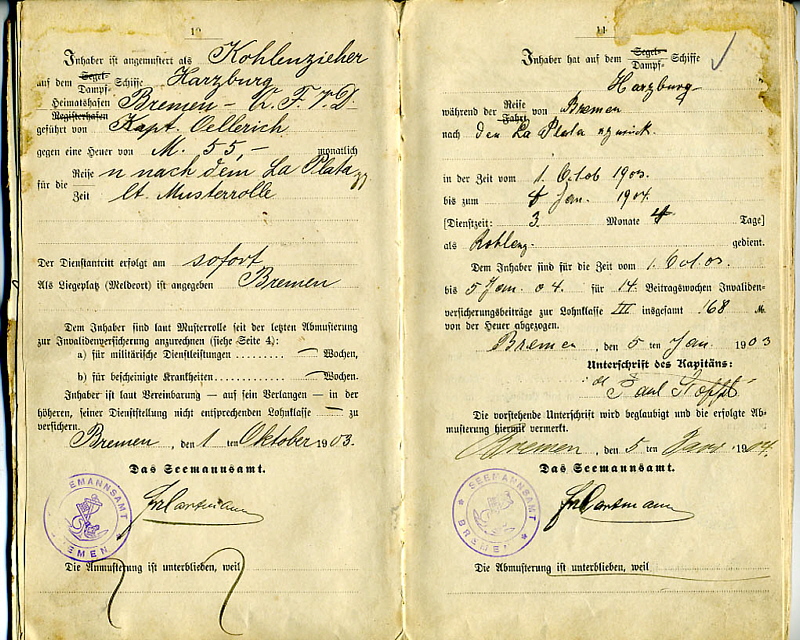 10
Inhaber ist angemustert als Kohlenzieher
auf dem Segel- Dampf- Schiffe Harzburg
Heimatshafen Registerhafen Bremen
geführt von Kapt. Oellerich
gegen eine Heuer von M. 55,- monatlich
für die Reise Zeit n nach dem La Plata
lt. Musterrolle
Der Dienstantritt erfolgt am sofort
Als Liegeplatz (Meldeort) ist angegeben Bremen
Dem Inhaber sind laut Musterrolle seit der letzten Abmusterung
zur Invalidenversicherung anzurechnen (siehe Seite 4):
a) für militärische Dienstleistungen — Wochen,
b) für bescheinigte Krankheiten — Wochen.
Inhaber ist laut Vereinbarung — auf sein Verlangen — in der
höheren, seiner Dienststellung nicht entsprechenden Lohnklasse — zu
versichern.
Bremen, den 1 ten Oktober 1903.
Das Seemannsamt.
SEEMANNSAMT BREMEN
Die Anmusterung ist unterblieben, weil
11
Inhaber hat auf dem Segel- Dampf- Schiffe
Harzburg
während der Reise Fahrt von Bremen
nach den La Plata zurück
in der Zeit vom 1. Octob 1903.
bis zum 4 Jan. 1904.
[Dienstzeit: 3 Monate 4 Tage]
als Kohlenz. gedient.
Dem Inhaber sind für die Zeit vom 1. Oct. 03.
bis 5 Jan. 04. für 14 Beitragswochen Invaliden-
versicherungsbeiträge zur Lohnklasse III insgesamt 168 M.
von der Heuer abgezogen.
Bremen, den 5 ten Jan. 1903
Unterschrift des Kapitäns:
Die vorstehende Unterschrift wird beglaubigt und die erfolgte Ab-
musterung hiermit vermerkt.
Bremen, den 5 Janr 1904.
Das Seemannsamt.
SEEMANNSAMT BREMEN
Die Abmusterung ist unterblieben, weil